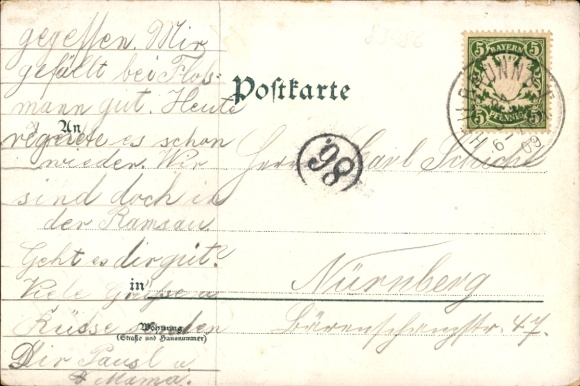 gegessen. Mir
gefällt bei Floß-
mann gut. Heute
regnete es schon
wieder. Wir
sind doch in
der Ramsau.
Geht es dir gut?
Viele Grüße u
Küsse senden
Dir Pausl u.
Mama.
Postkarte
An
Herrn Karl
in
Nürnberg
Wohnung
(Straße und Hausnummer)
Bärenschanzstr. 47.
98
5 BAYERN 5
5 PFENNIG 5
6
09